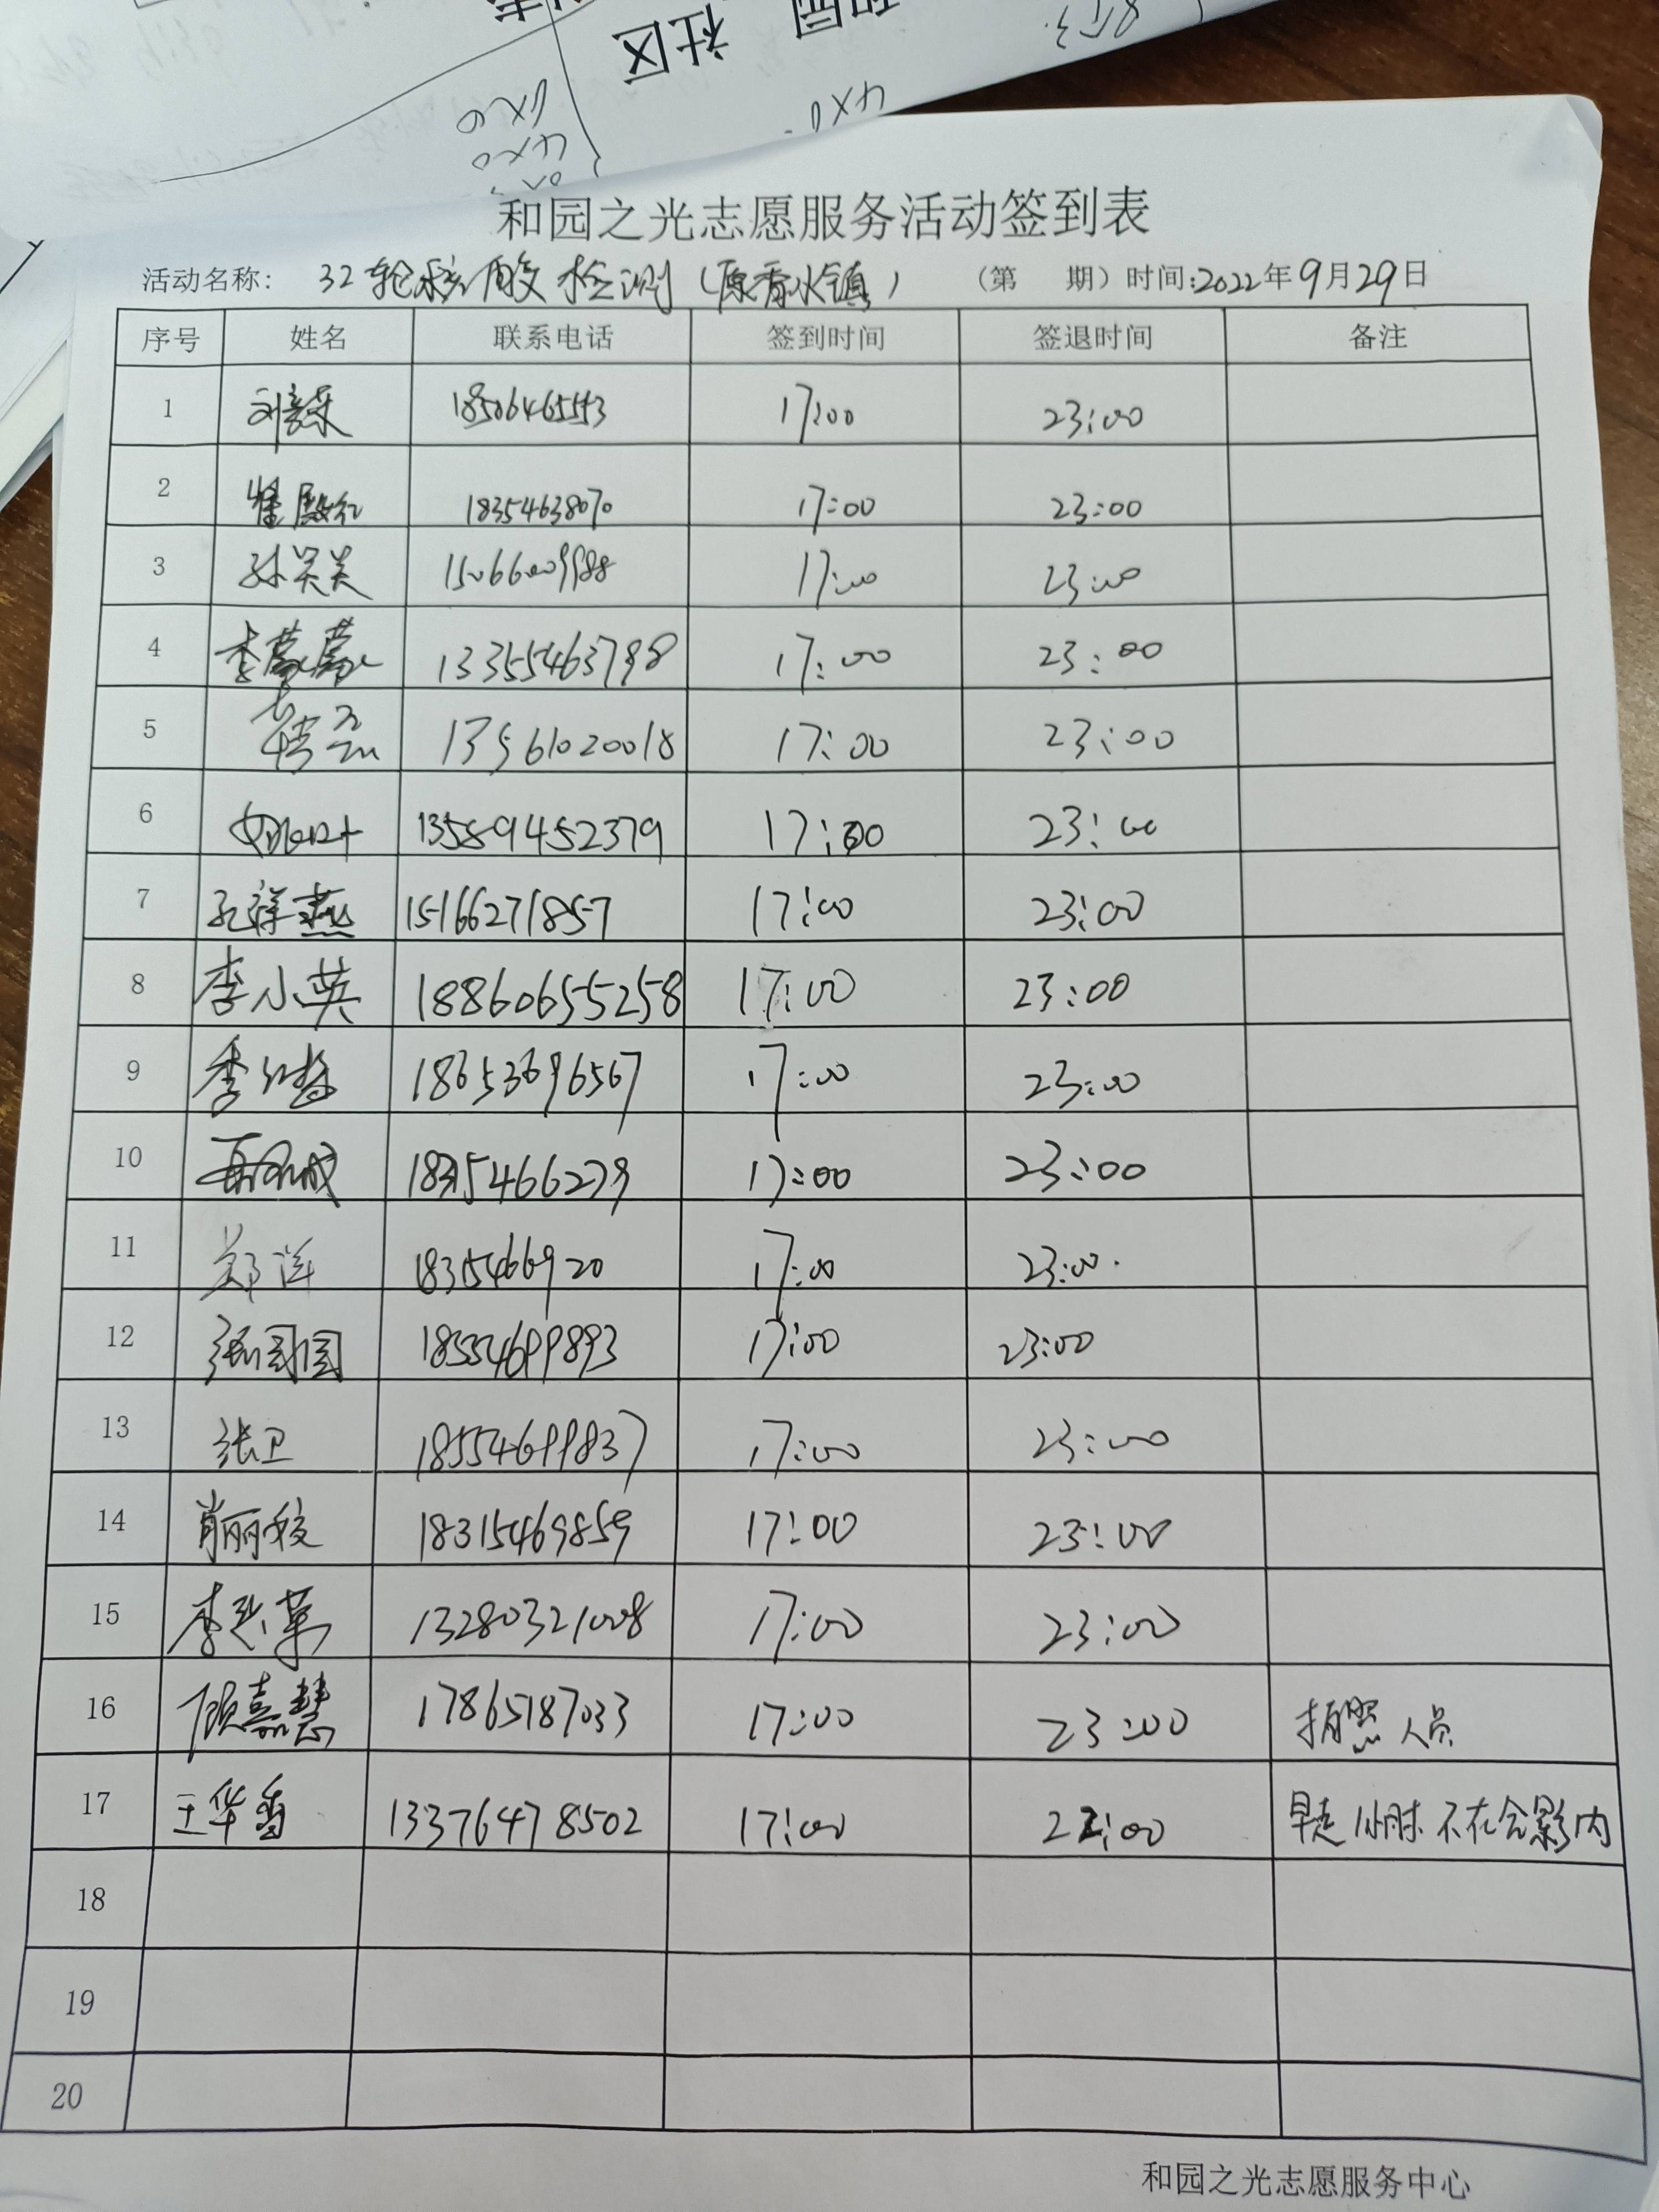 社区 和园
和园之光志愿服务活动签到表
活动名称: 32轮核酸检测(原香水镇) (第 期)时间:2022年9月29日
序号 姓名 联系电话 签到时间 签退时间 备注
1 17:00 23:00
2 18354638070 17:00 23:00
3 孙昊昊 15066009988 17:00 23:00
4 李蒙蒙 13355463798 17:00 23:00
5 13561020018 17:00 23:00
6 13589452379 17:00 23:00
7 孔祥燕 15166271857 17:00 23:00
8 李小英 18860655258 17:00 23:00
9 18653696567 17:00 23:00
10 17:00 23:00
11 郑洋 1835466920 17:00 23:00.
12 张园园 18554699893 17:00 23:00
13 张卫 18554699837 17:00 23:00
14 肖丽姣 18315469859 17:00 23:00
15 13280321008 17:00 23:00
16 顾嘉慧 17865187033 17:00 23:00 拍照人员
17 王华香 13376478502 17:00 22:00 早走1小时 不在合影内
18
19
20
和园之光志愿服务中心